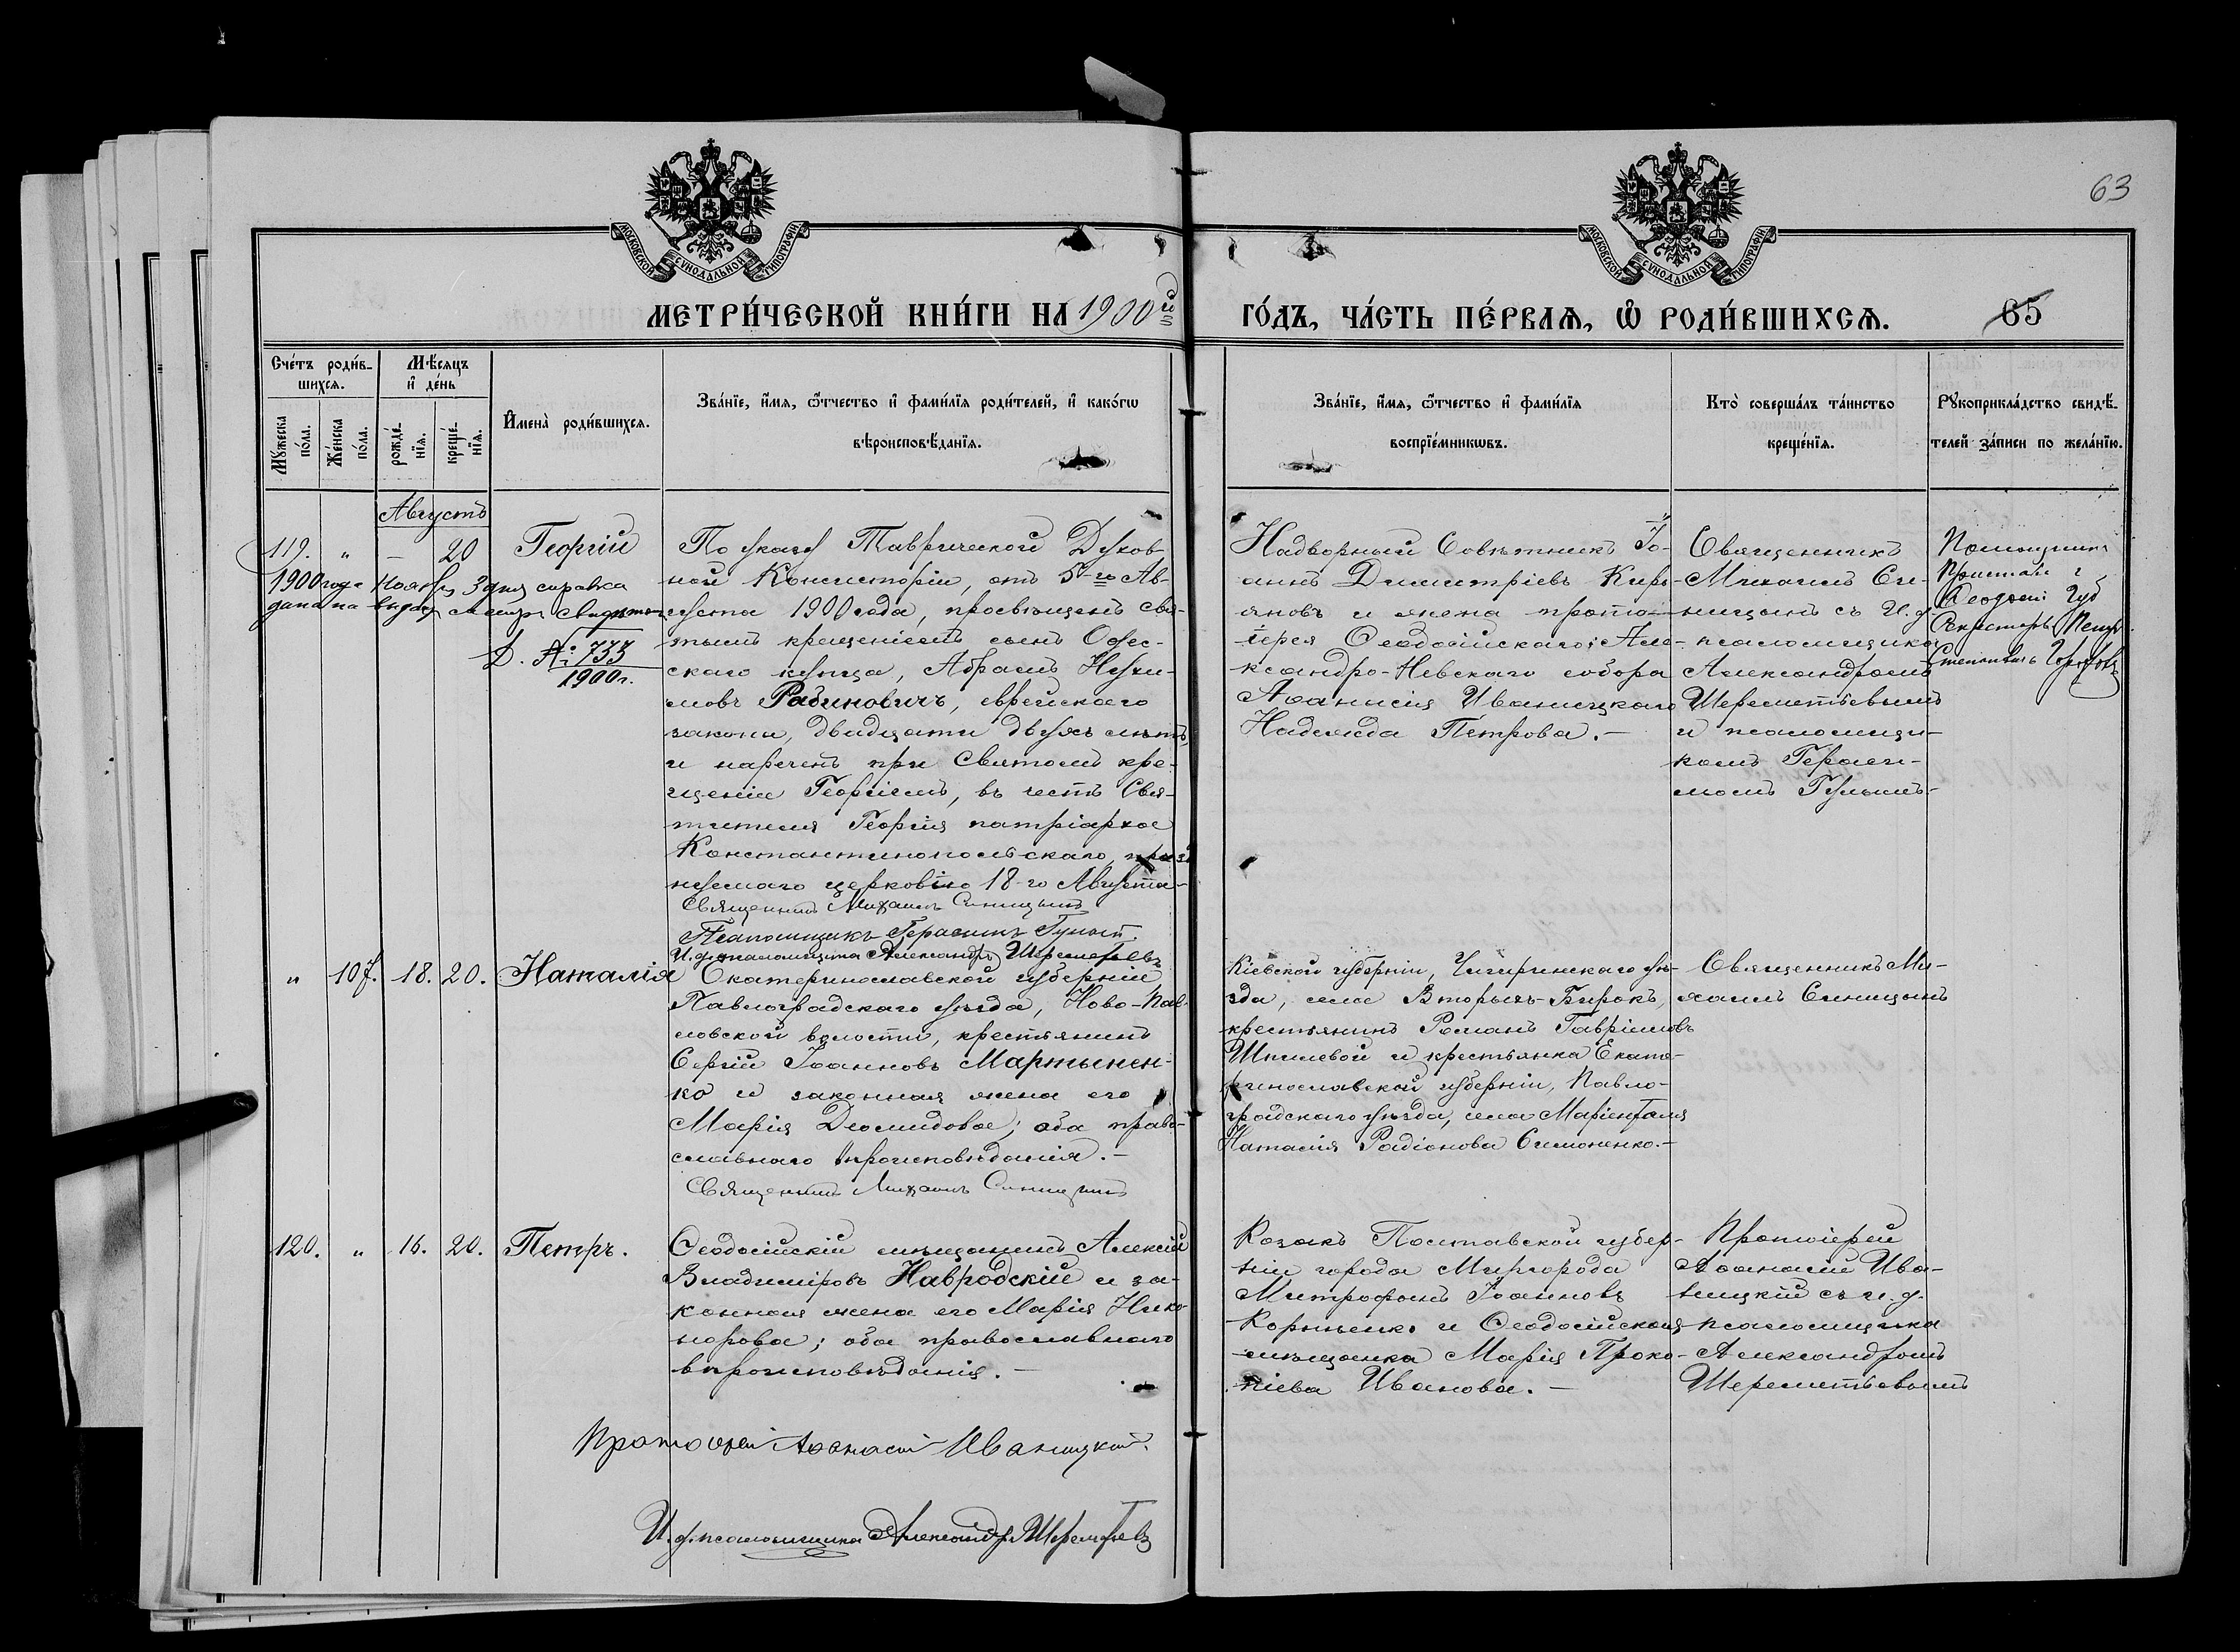 63
МОСКОВСКОЙ СѴНОДАЛЬНОЙ ТИПОГРАФІИ
МОСКОВСКОЙ СѴНОДАЛЬНОЙ ТИПОГРАФІИ
МЕТРИ́ЧЕСКОЙ КНИ́ГИ НА 1900й ГО́ДЪ, ЧА́СТЬ ПЕ́РВАѦ, Ѡ҆ РОДИ́ВШИХСѦ. 65
Сче́тъ роди́в-
шихсѧ.
Мѣ́сѧцъ
и҆ де́нь
Мꙋ́жеска
по́ла.
Же́нска
по́ла.
рожде́-
нїѧ.
креще́-
нїѧ.
И҆мена̀ роди́вшихсѧ.
Зва́нїе, и҆́мѧ, ѻ҆́тчество и҆ фами́лїѧ роди́телей, и҆ како́гѡ
вѣроисповѣ́данїѧ.
Зва́нїе, и҆́мѧ, ѻ҆́тчество и҆ фами́лїѧ
воспрїе́мникѡвъ.
Кто̀ соверша́лъ та́инство
креще́нїѧ.
Рꙋкоприкла́дство свидѣ́-
телей за́писи по жела́нїю.
Августъ
119. " — 20 Георгій
1900 года Ноября 3 дня справка
дана на выдачу метр.
Д. № 733
1900 г.
По указу Таврической Духов-
ной Консисторіи, отъ 5-го Ав-
густа 1900 года, просвѣщенъ свя-
тымъ крещеніемъ сынъ Одес-
скаго купца, Абрамъ Нухи-
мовъ Рабиновичъ, еврейскаго
закона, двадцати двухъ лѣтъ,
и нареченъ при Святомъ кре-
щеніи Георгіемъ, въ честь Свя-
тителя Георгія патріарха
Константинопольскаго, празд
нуемаго церковію 18-го Августа
Священникъ Михаилъ Синицынъ
Псаломщикъ Герасимъ Гулый.
И. д. псаломщика Александръ Шереметьевъ
Надворный Совѣтникъ Іо-
аннъ Димитріевъ Кирі-
яновъ и жена прото-
іерея Ѳеодосійскаго Але-
ксандро-Невскаго собора
Аѳанасія Иваницкаго
Надежда Петрова. —
Священникъ
Михаилъ Си-
ницынъ съ и. д.
псаломщика
Александромъ
Шереметьевымъ
и псаломщи-
комъ Гераси-
момъ Гулымъ. —
Помощникъ
Пристава
Секретарь
"  107. 18. 20. Наталія
Екатеринославской губерніи
Павлоградскаго уѣзда, Ново-Пав-
ловской волости, крестьянинъ
Сергій Іоанновъ Мартынен-
ко и законная жена его
Марія Деомидова; оба право-
славнаго вѣроисповѣданія. —
Священникъ Михаилъ Синицынъ
Кіевской губерніи, Чигиринскаго уѣ-
зда, села Вторыхъ-Бирокъ,
крестьянинъ Романъ Гавріиловъ
Шпилевой и крестьянка Екате-
ринославской губерніи, Павло-
градскаго уѣзда, села Маріенталя
Наталія Радіонова Симоненко. —
Священникъ Ми-
хаилъ Синицынъ
120. " 16. 20. Петръ.
Ѳеодосійскій мѣщанинъ Алексій
Владиміровъ Навродскій и за-
конная жена его Марія Ника-
норова; оба православнаго
вѣроисповѣданія. —
Козакъ Полтавской губер-
ніи города Миргорода
Митрофанъ Іоанновъ
Корниенко и Ѳеодосійская
мѣщанка Марія Проко-
піева Иванова. —
Протоіерей
Аѳанасій Ива-
ницкій съ и. д.
псаломщика
Александромъ
Шереметьевымъ
Протоіерей Аѳанасій Иваницкій.
И. д. псаломщика Александръ Шереметьевъ